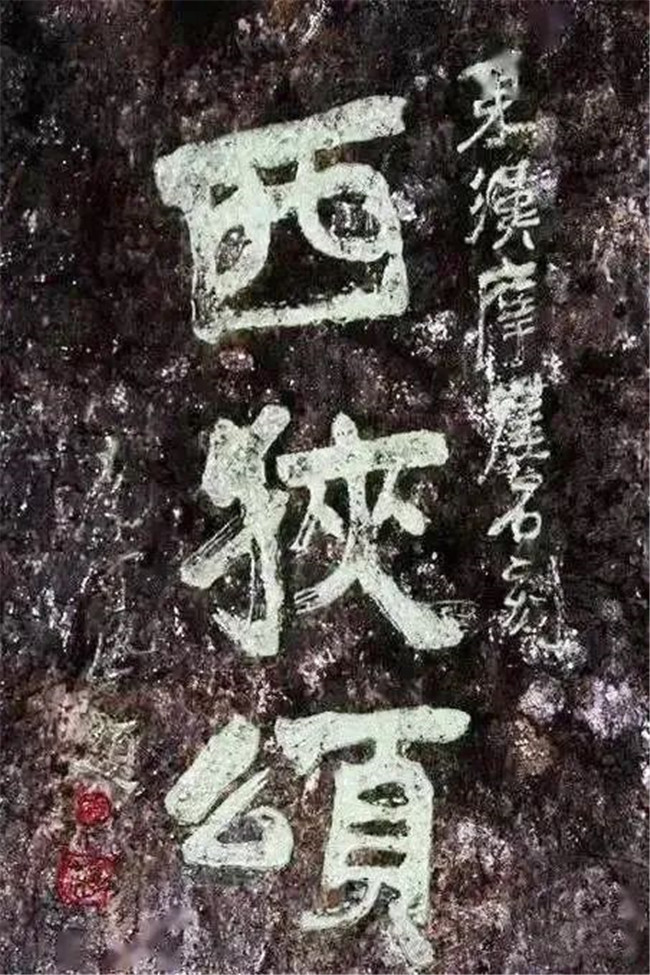 东漢摩崖石刻
西狹頌